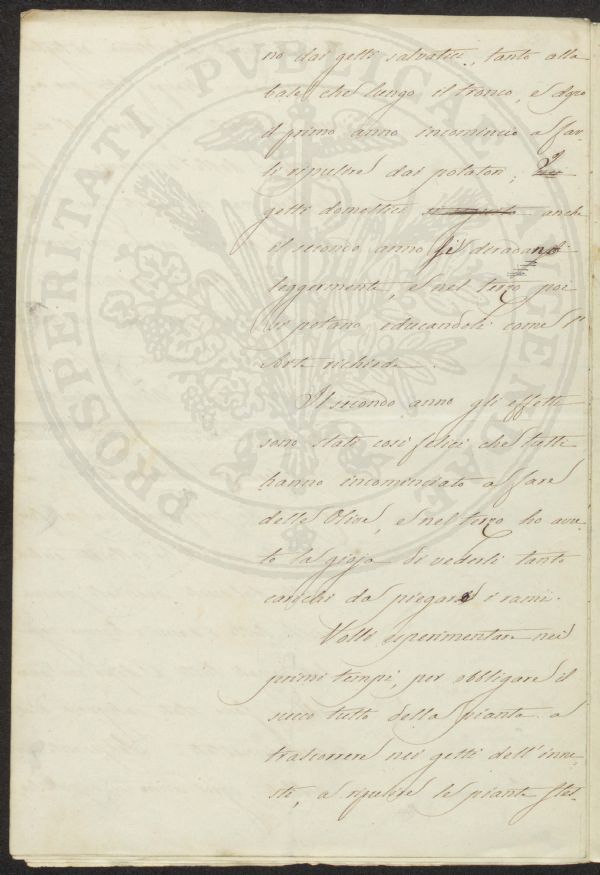 no dai getti salvatici, tanto alla
base che lungo il tronco, e dopo
il primo anno incomincio a far-
li ripulire dai potatori;
getti domestici anche
il secondo anno si diradano
leggermente, e nel terzo poi
si potano, educandoli come l'
arte richiede.
Il secondo anno gli effetti
sono stati così felici che tutti
hanno incominciato a fare
delle Olive, e nel terzo ho avu-
to la gioja di vederli tanto
carichi da piegare i rami.
Volli esperimentare nei
primi tempi, per obbligare il
succo tutto della pianta a
trascorrere nei getti dell'inne-
sto, a ripulire le piante stes-
PROSPERITATI PUBLICAE AUGENDAE